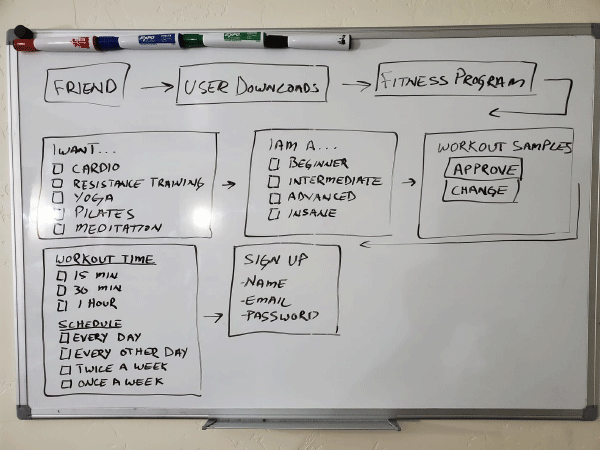 EXPO
FRIEND
USER DOWNLOADS
FITNESS PROGRAM
I WANT...
CARDIO
RESISTANCE TRAINING
YOGA
PILATES
MEDITATION
I AM A...
BEGINNER
INTERMEDIATE
ADVANCED
INSANE
WORKOUT SAMPLES
APPROVE
CHANGE
WORKOUT TIME
15 MIN
30 MIN
1 HOUR
SCHEDULE
EVERY DAY
EVERY OTHER DAY
TWICE A WEEK
ONCE A WEEK
SIGN UP
-NAME
-EMAIL
-PASSWORD